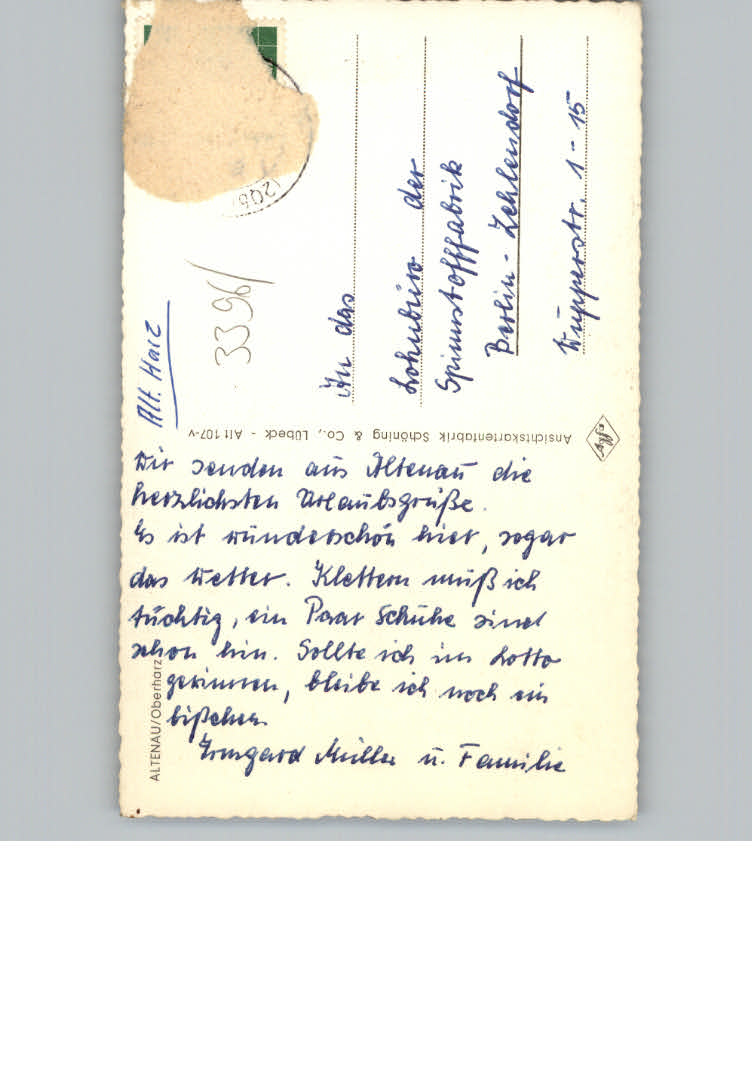 Alt. Harz
3396/
(20b)
An das
Lohnbüro der
Spinnstofffabrik
Berlin-Zehlendorf
Wupperstr. 1-15
Ansichtskartenfabrik Schöning & Co., Lübeck - Alt 107-v
Agfa
Wir senden aus Altenau die
herzlichsten Urlaubsgrüße.
Es ist wunderschön hier, sogar
das Wetter. Klettern muß ich
tüchtig, ein Paar Schuhe sind
schon hin. Sollte ich im Lotto
gewinnen, bleibe ich noch ein
bißchen.
Irmgard Müller u. Familie
ALTENAU/Oberharz